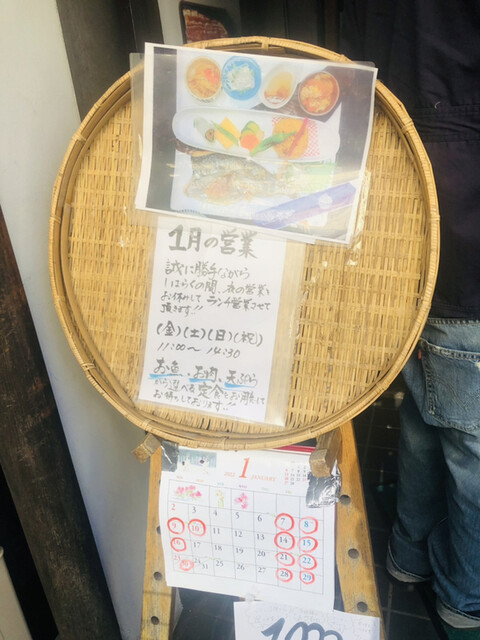 1月の営業
誠に勝手ながら
しばらくの間、夜の営業を
お休みして ランチ営業させて
頂きます!!
(金)(土)(日)(祝)
11:00〜14:30
お魚、お肉、天ぷら
から選べる定食をお用意して
お待ちしております!!
2022 1 JANUARY
1
2 3 4 5 6 7 8
9 10 11 12 13 14 15
16 17 18 19 20 21 22
23 24 25 26 27 28 29
30 31